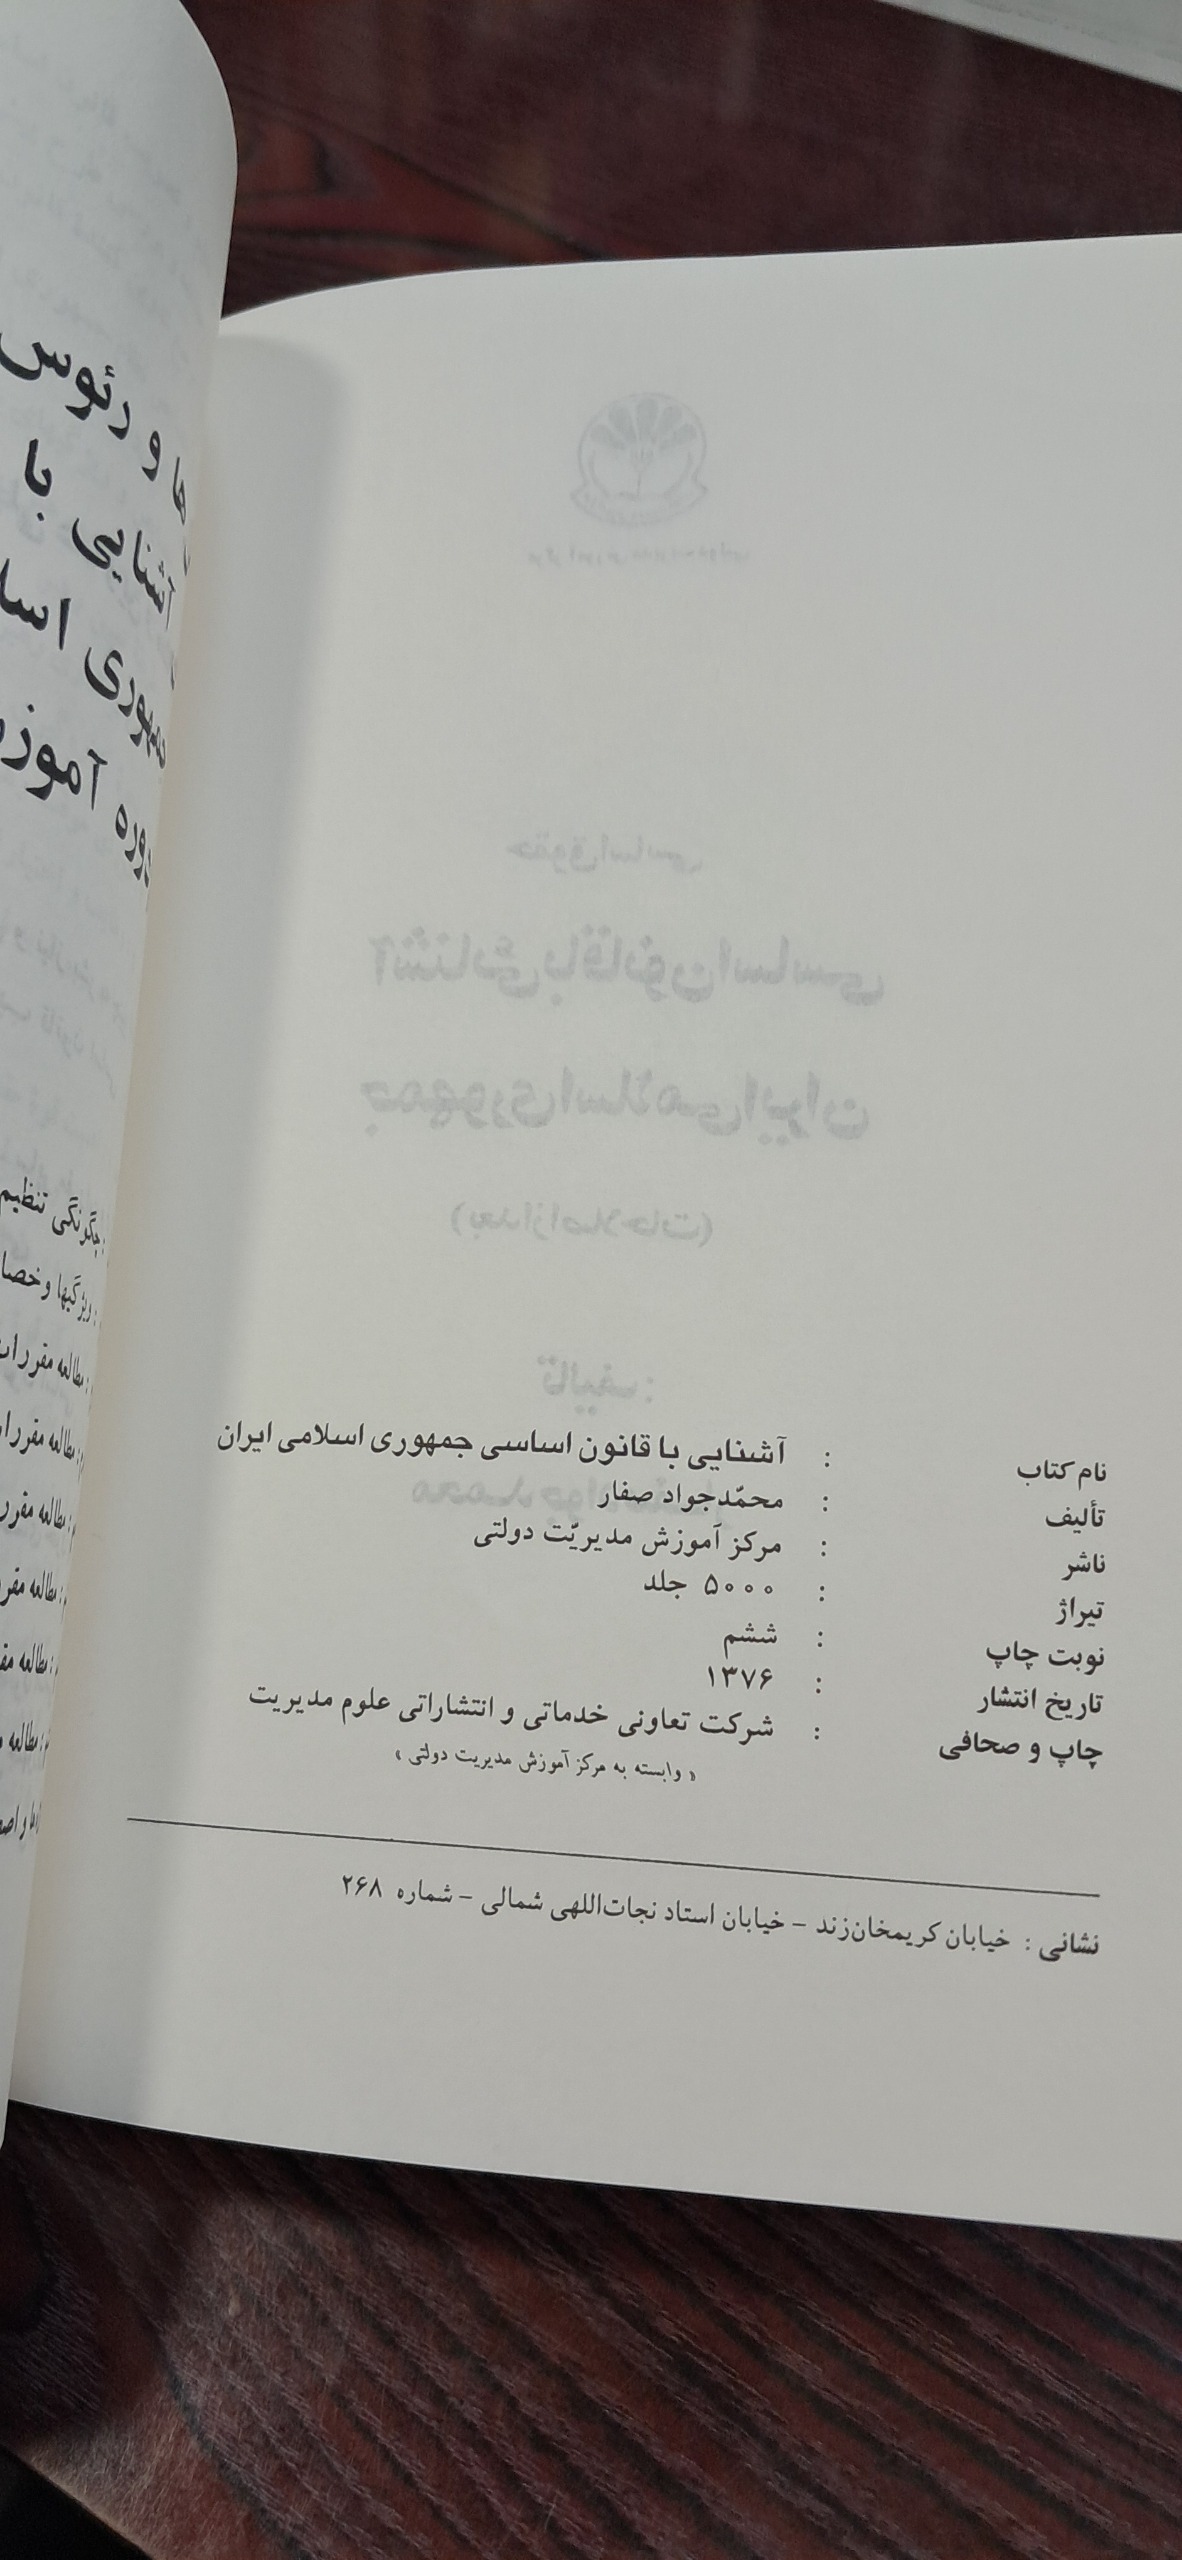 نام کتاب : آشنایی با قانون اساسی جمهوری اسلامی ایران
تألیف : محمّدجواد صفار
ناشر : مرکز آموزش مدیریّت دولتی
تیراژ : ۵۰۰۰ جلد
نوبت چاپ : ششم
تاریخ انتشار : ۱۳۷۶
چاپ و صحافی : شرکت تعاونی خدماتی و انتشاراتی علوم مدیریت
« وابسته به مرکز آموزش مدیریت دولتی »
نشانی : خیابان کریمخان‌زند – خیابان استاد نجات‌اللهی شمالی – شماره ۲۶۸
و رئوس
آشنایی با
چگونگی تنظیم
ویژگیها و
: مطالعه مقررات
: مطالعه
: مطالعه
: مطالعه
: مطالعه
: مطالعه